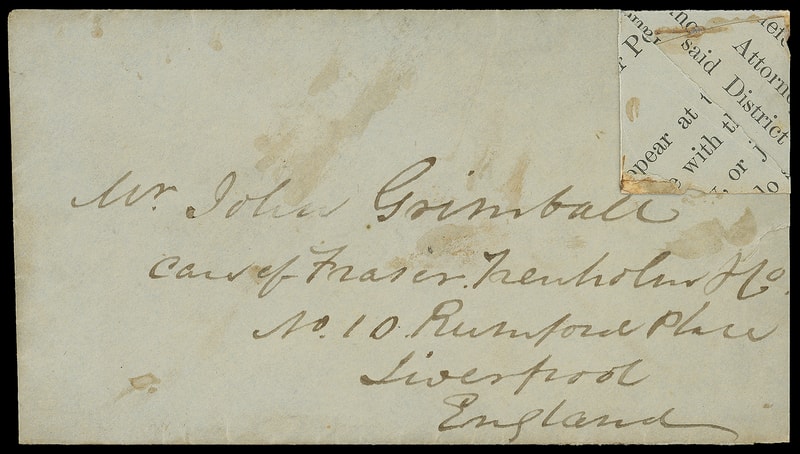 Attorne
said District
ppear at
with th
or
Mr. John Grimball
care of Fraser. Trenholm & Co.
No. 10. Rumford Place
Liverpool
England